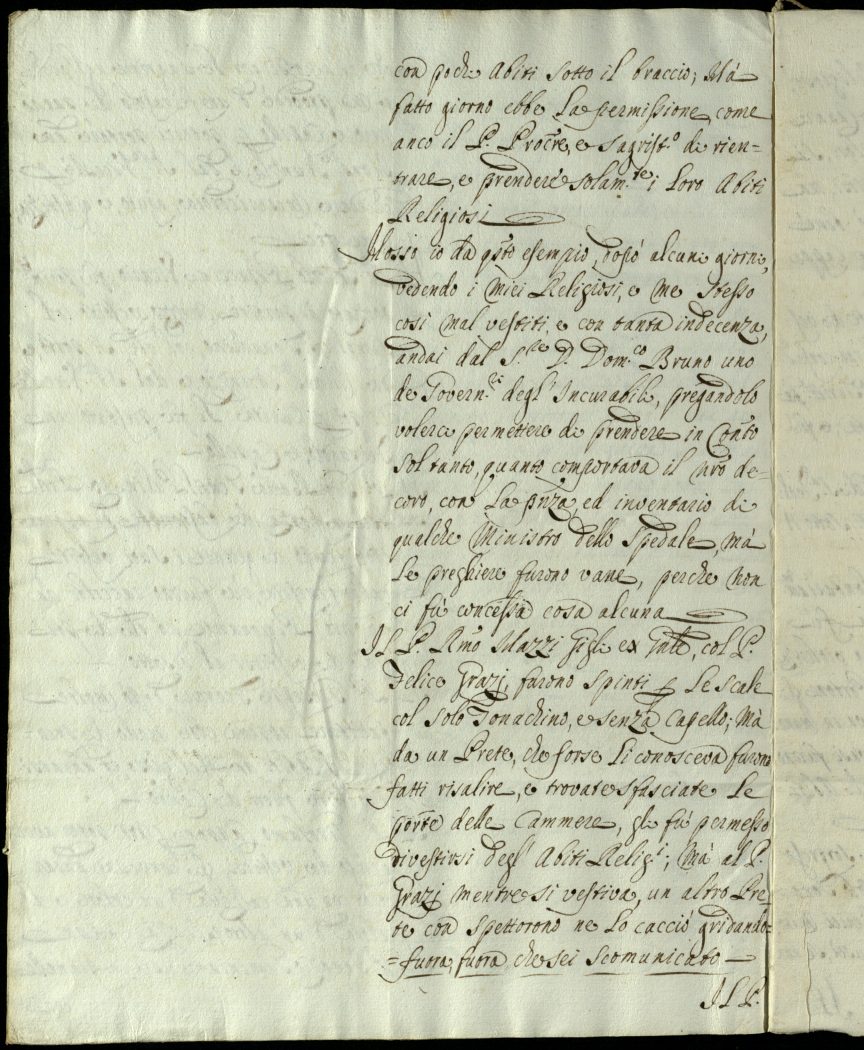 con pochi Abiti sotto il braccio; Mà
fatto giorno ebbe La permissione, come
anco il P. Procre, e sagrist.o di rien=
trare, e prendere solam.te i Loro Abiti
Religiosi
Mosso io da qsto esempio, dopò alcuni giorni,
vedendo i miei Religiosi, e me stesso
così mal vestiti, e con tanta indecenza,
andai dal S.re D. Dom.co Bruno uno
de Govern.ri degl' Incurabili, pregandolo
volerci permettere di prendere in Conto
sol tanto, quanto comportava il nro de=
coro, con La pnza, ed inventario di
qualche Ministro dello Spedale, mà
Le preghiere furono vane, perche non
ci fù concessa cosa alcuna
Il P. Rmo Mazzi Gigli ex Gnle, col P.
Felice Grazj, furono spinti p Le scale
col solo Tonachino, e senza Capello; Mà
da un Prete, che forse Li conosceva furono
fatti risalire, e trovate sfasciate Le
porte delle Cammere, gli fù permesso
divestirsi degl' Abiti Relig.i; Mà al P.
Grazj mentre si vestiva, un altro Pre
te con spettorono ne Lo cacciò gridando=
=fuora, fuora che sei scomunicato
Il P.